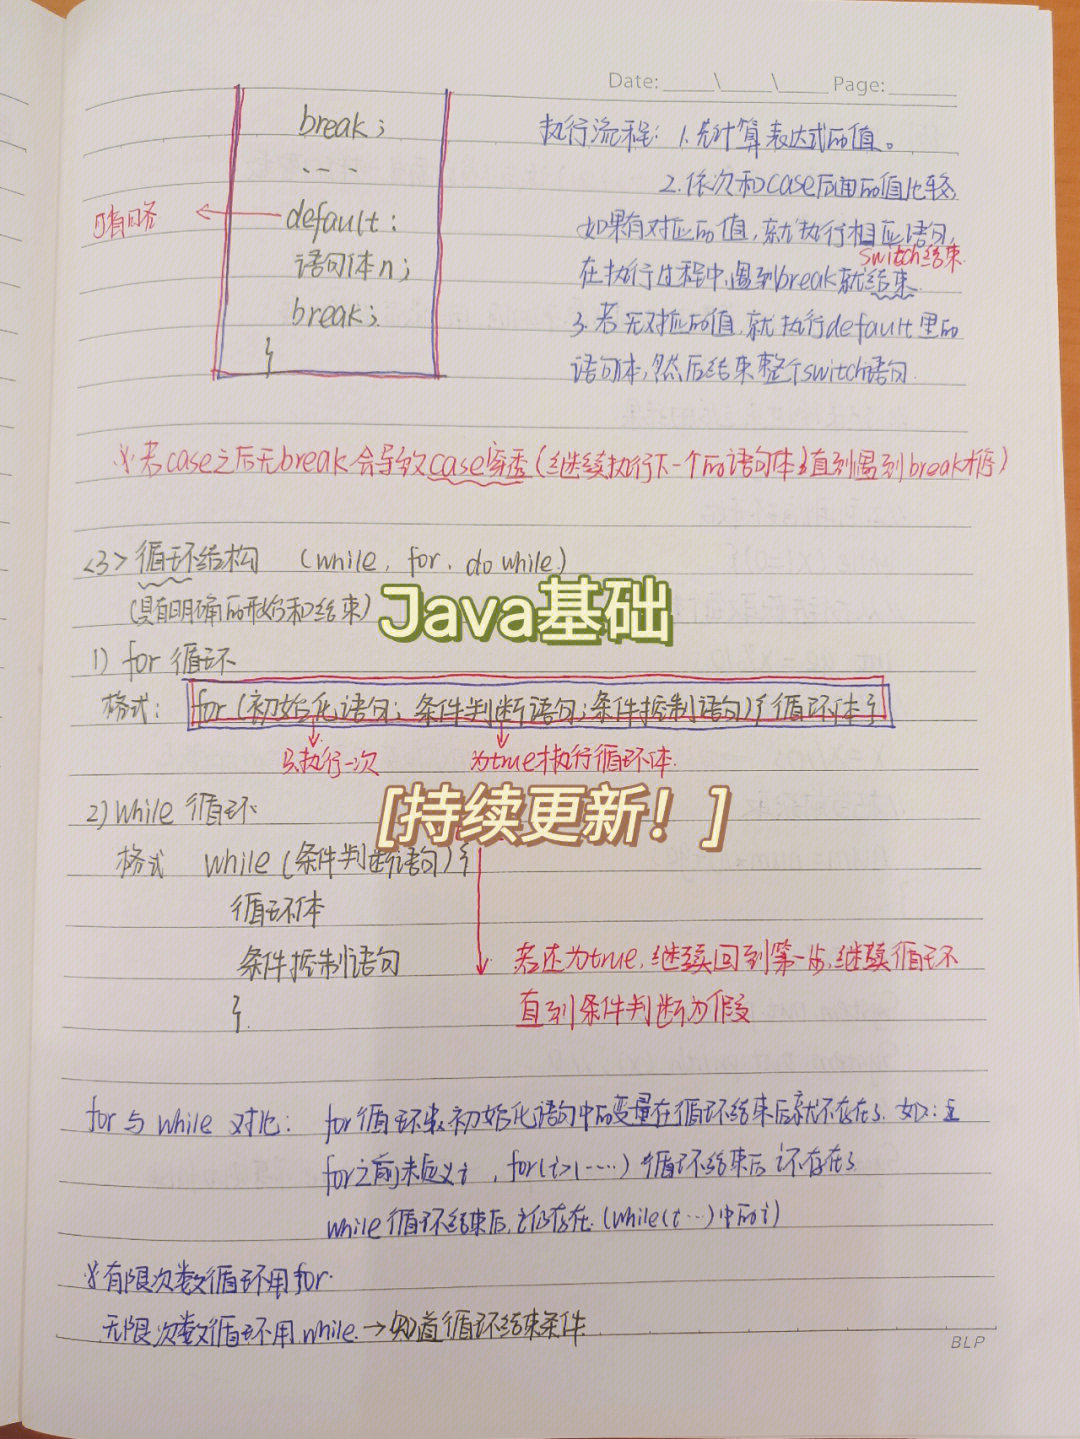 Date: \ \ Page:
break;
...
default:
语句体n;
break;
}
可省略
执行流程: 1.先计算表达式的值。
2.依次和case后面的值比较,
如果有对应的值,就执行相应语句,
在执行过程中,遇到break就结束.
switch结束.
3.若无对应的值,就执行default里的
语句体,然后结束整个switch语句.
※若case之后无break会导致case穿透(继续执行下一个的语句体直到遇到break格)
<3>循环结构 (while, for, do while.)
(具有明确的开始和结束)
Java基础
1) for 循环
格式: for(初始化语句;条件判断语句;条件控制语句){循环体}
只执行一次
为true才执行循环体.
[持续更新!]
2) while 循环
格式 while(条件判断语句){
循环体
条件控制语句
}.
若还为true,继续回到第一步,继续循环
直到条件判断为假
for与while对比: for循环初始化语句中的变量在循环结束后就不存在了.如:在
for之前未定义i, for(i>1……)循环结束后i不存在了
while循环结束后,i仍存在.(while(i…)中的i)
※有限次数循环用for.
无限次数循环用while.→知道循环结束条件
BLP